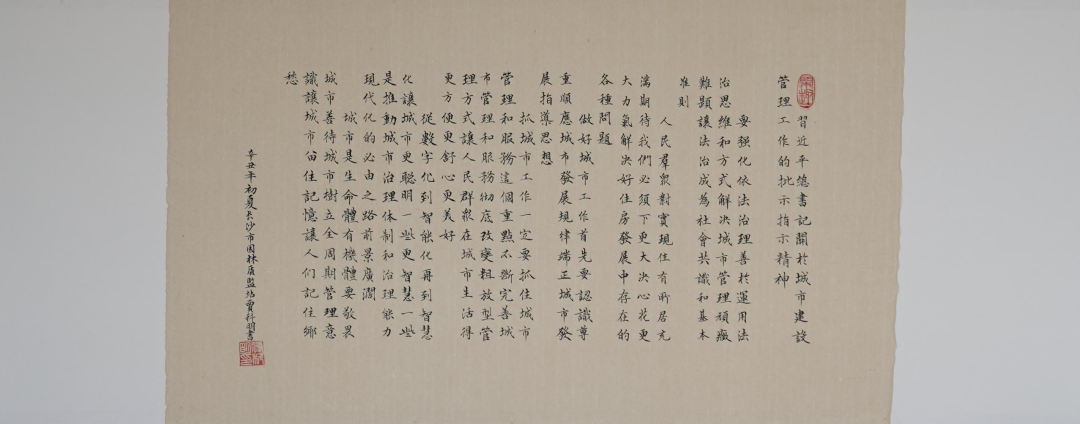 習近平總書記關於城市建設
管理工作的批示指示精神
要强化依法治理善於運用法
治思維和方式解决城市管理頑癥
難題讓法治成為社會共識和基本
准则
人民羣衆對實現住有所居充
滿期待我們必須下更大决心花更
大力氣解决好住房發展中存在的
各種問題
做好城市工作首先要認識尊
重順應城市發展規律端正城市發
展指導思想
抓城市工作一定要抓住城市
管理和服務這個重點不斷完善城
市管理和服務彻底改變粗放型管
理方式讓人民群衆在城市生活得
更方便更舒心更美好
從數字化到智能化再到智慧
化讓城市更聰明一些更智慧一些
是推動城市治理体制和治理能力
現代化的必由之路前景廣濶
城市是生命體有機體要敬畏
城市善待城市樹立全周期管理意
識讓城市留住記憶讓人们記住鄉
愁
辛丑年初夏長沙市園林質監站賈科碧書